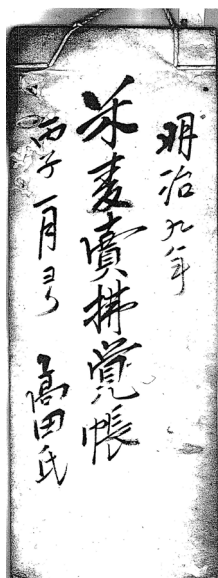 明治九年
米麦賣拂覚帳
丙子一月ヨリ
高田氏